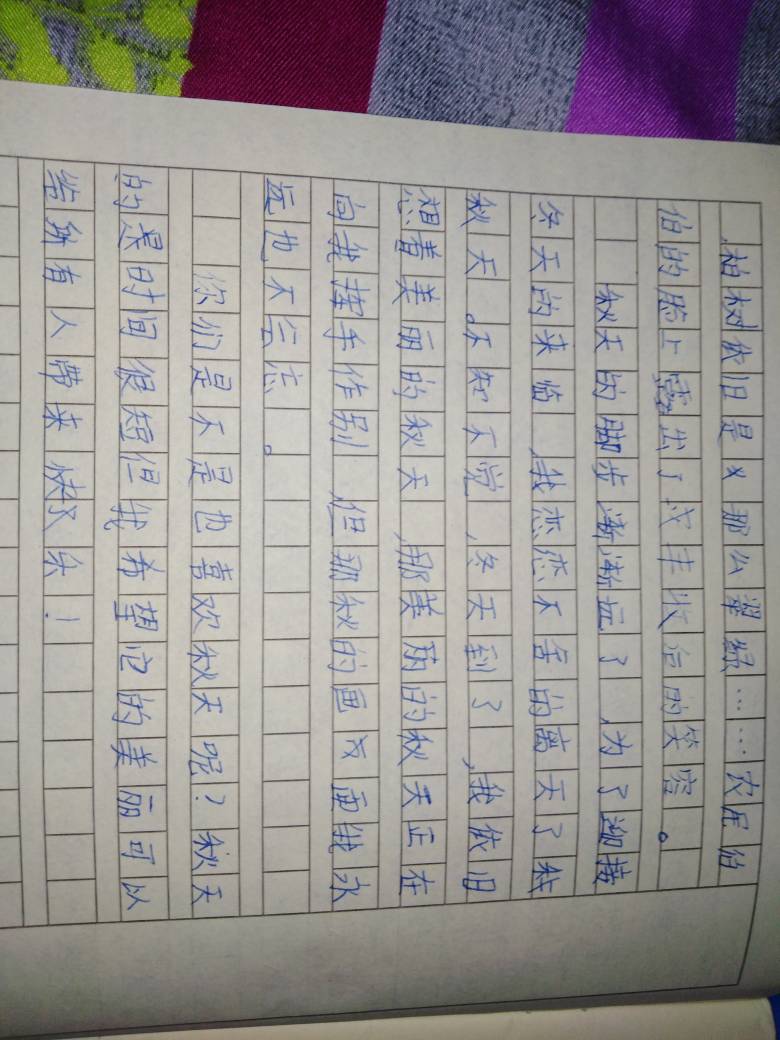 柏树依旧是那么翠绿……农民伯
伯的脸上露出了丰收后的笑容。
秋天的脚步渐渐远了,为了迎接
冬天的来临,我恋恋不舍的离天了秋
秋天。不知不觉,冬天到了,我依旧
想着美丽的秋天,那美丽的秋天正在
向我挥手作别,但那秋的画面我永
远也不会忘。
你们是不是也喜欢秋天呢?秋天
的是时间很短但我希望它的美丽可以
给所有人带来快乐!